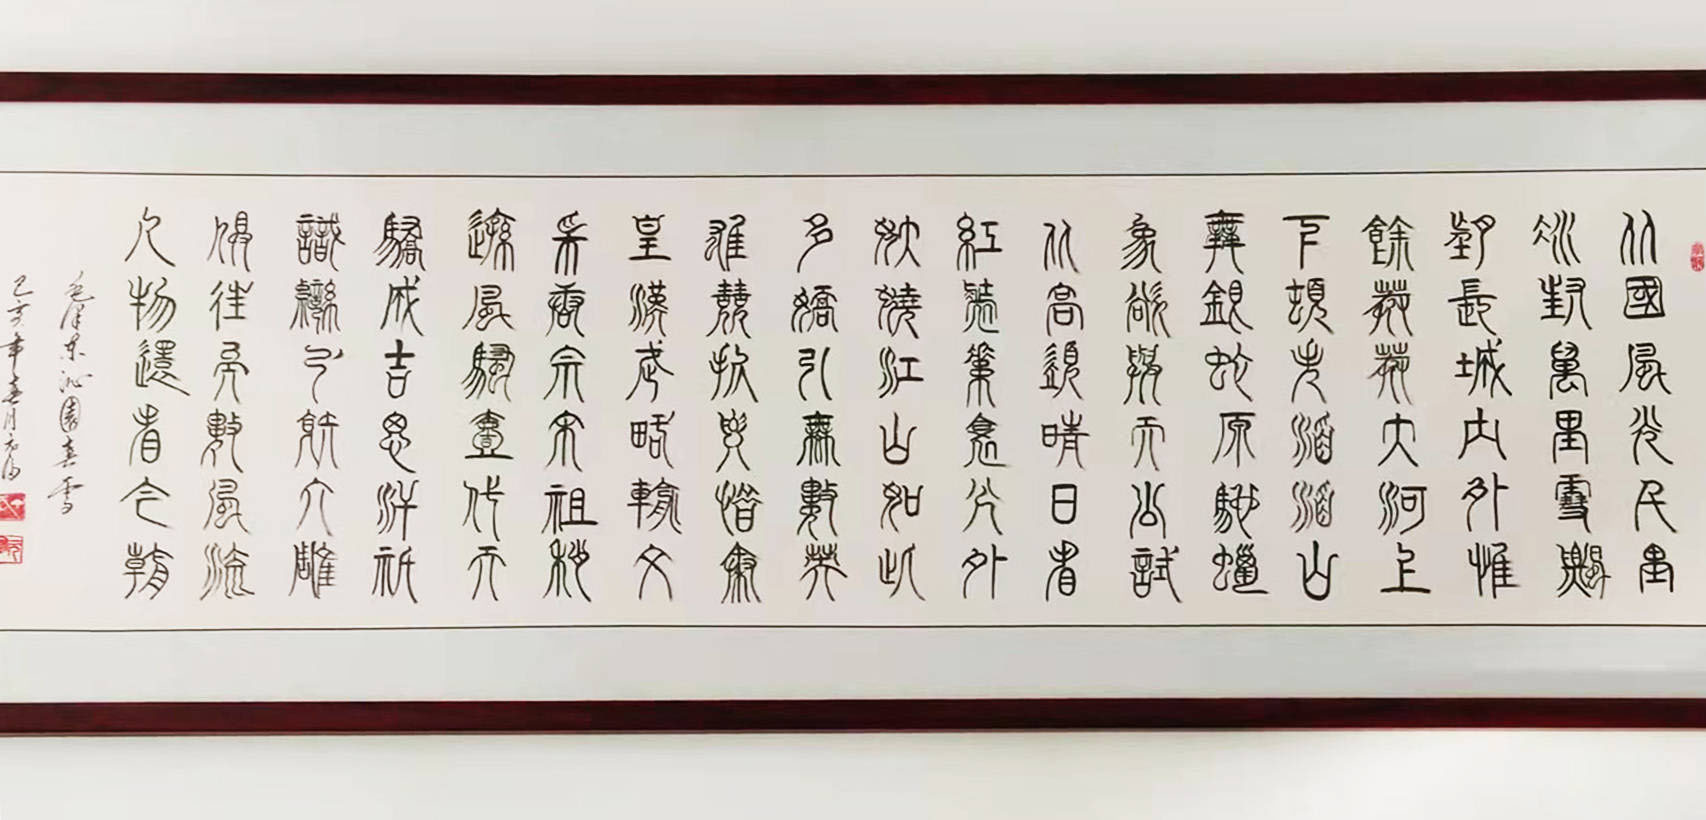 北國風光千里
冰封萬里雪飄
望長城內外惟
餘莽莽大河上
下頓失滔滔山
舞銀蛇原馳蠟
象欲與天公試
比高須晴日看
紅裝素裹分外
妖嬈江山如此
多嬌引無數英
雄競折腰惜秦
皇漢武略輸文
采唐宗宋祖稍
遜風騷壹代天
驕成吉思汗祇
識彎弓射大雕
俱往矣數風流
人物還看今朝
毛澤東沁園春雪
己亥年春月